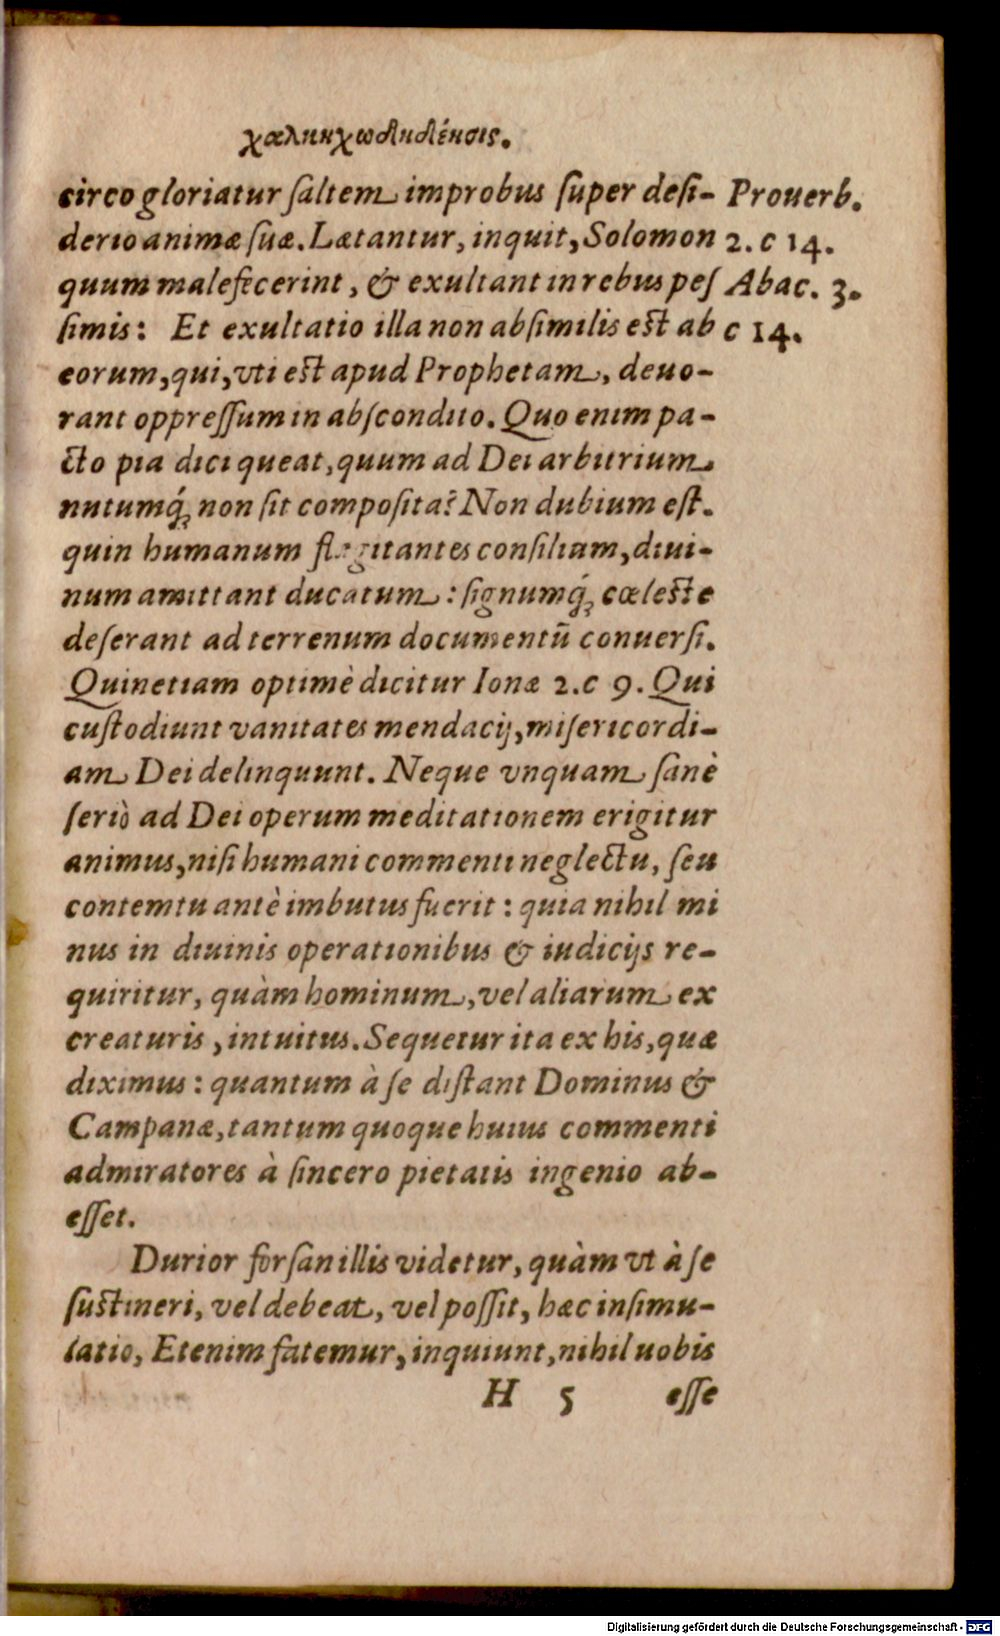 χαλκηχωδηδένσις.
circo gloriatur ſaltem improbus ſuper deſi-
derio animæ ſuæ. Lætantur, inquit, Solomon
quum malefecerint, & exultant in rebus peſ
ſimis: Et exultatio illa non abſimilis eſt ab
eorum, qui, vti eſt apud Prophetam, deuo-
rant oppreſſum in abſcondito. Quo enim pa-
cto pia dici queat, quum ad Dei arbitrium
nutumq́; non ſit compoſita? Non dubium eſt.
quin humanum flagitantes conſilium, diui-
num amittant ducatum: ſignumq́; cœleſte
deſerant ad terrenum documentū conuerſi.
Quinetiam optimè dicitur Ionæ 2.c 9. Qui
cuſtodiunt vanitates mendacij, miſericordi-
am Dei delinquunt. Neque vnquam ſanè
ſeriò ad Dei operum meditationem erigitur
animus, niſi humani commenti neglectu, ſeu
contemtu antè imbutus fuerit: quia nihil mi
nus in diuinis operationibus & iudicijs re-
quiritur, quàm hominum, vel aliarum ex
creaturis, intuitus. Sequetur ita ex his, quæ
diximus: quantum à ſe diſtant Dominus &
Campanæ, tantum quoque huius commenti
admiratores à ſincero pietatis ingenio ab-
eſſet.
Durior forſan illis videtur, quàm vt à ſe
ſuſtineri, vel debeat, vel poſſit, hæc inſimu-
latio, Etenim fatemur, inquiunt, nihil uobis
H 5 eſſe
Prouerb.
2. c 14.
Abac. 3.
c 14.
Digitalisierung gefördert durch die Deutsche Forschungsgemeinschaft - DFG